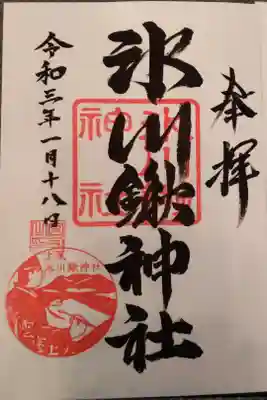 奉拝
氷川鍬神社
令和三年一月十八日
氷川鍬神社